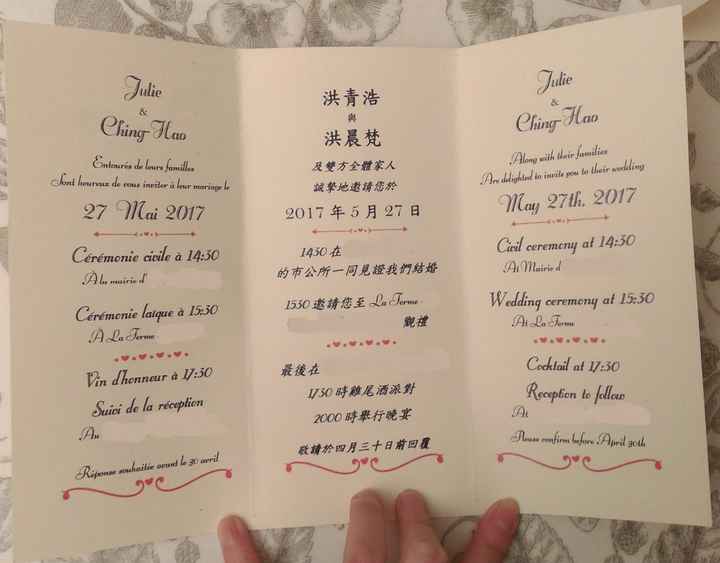 Julie
&
Ching-Hao
Entourés de leurs familles
Sont heureux de vous inviter à leur mariage le
27 Mai 2017
Cérémonie civile à 14:30
À la mairie d'
Cérémonie laïque à 15:30
À La Ferme
Vin d'honneur à 17:30
Suivi de la réception
Au
Réponse souhaitée avant le 30 avril
洪青浩
與
洪晨梵
及雙方全體家人
誠摯地邀請您於
2017 年 5 月 27 日
1430 在
的市公所一同見證我們結婚
1530 邀請您至 La Ferme
觀禮
最後在
1730 時雞尾酒派對
2000 時舉行晚宴
敬請於四月三十日前回覆
Julie
&
Ching-Hao
Along with their families
Are delighted to invite you to their wedding
May 27th, 2017
Civil ceremony at 14:30
At Mairie d
Wedding ceremony at 15:30
At La Ferme
Cocktail at 17:30
Reception to follow
At
Please confirm before April 30th